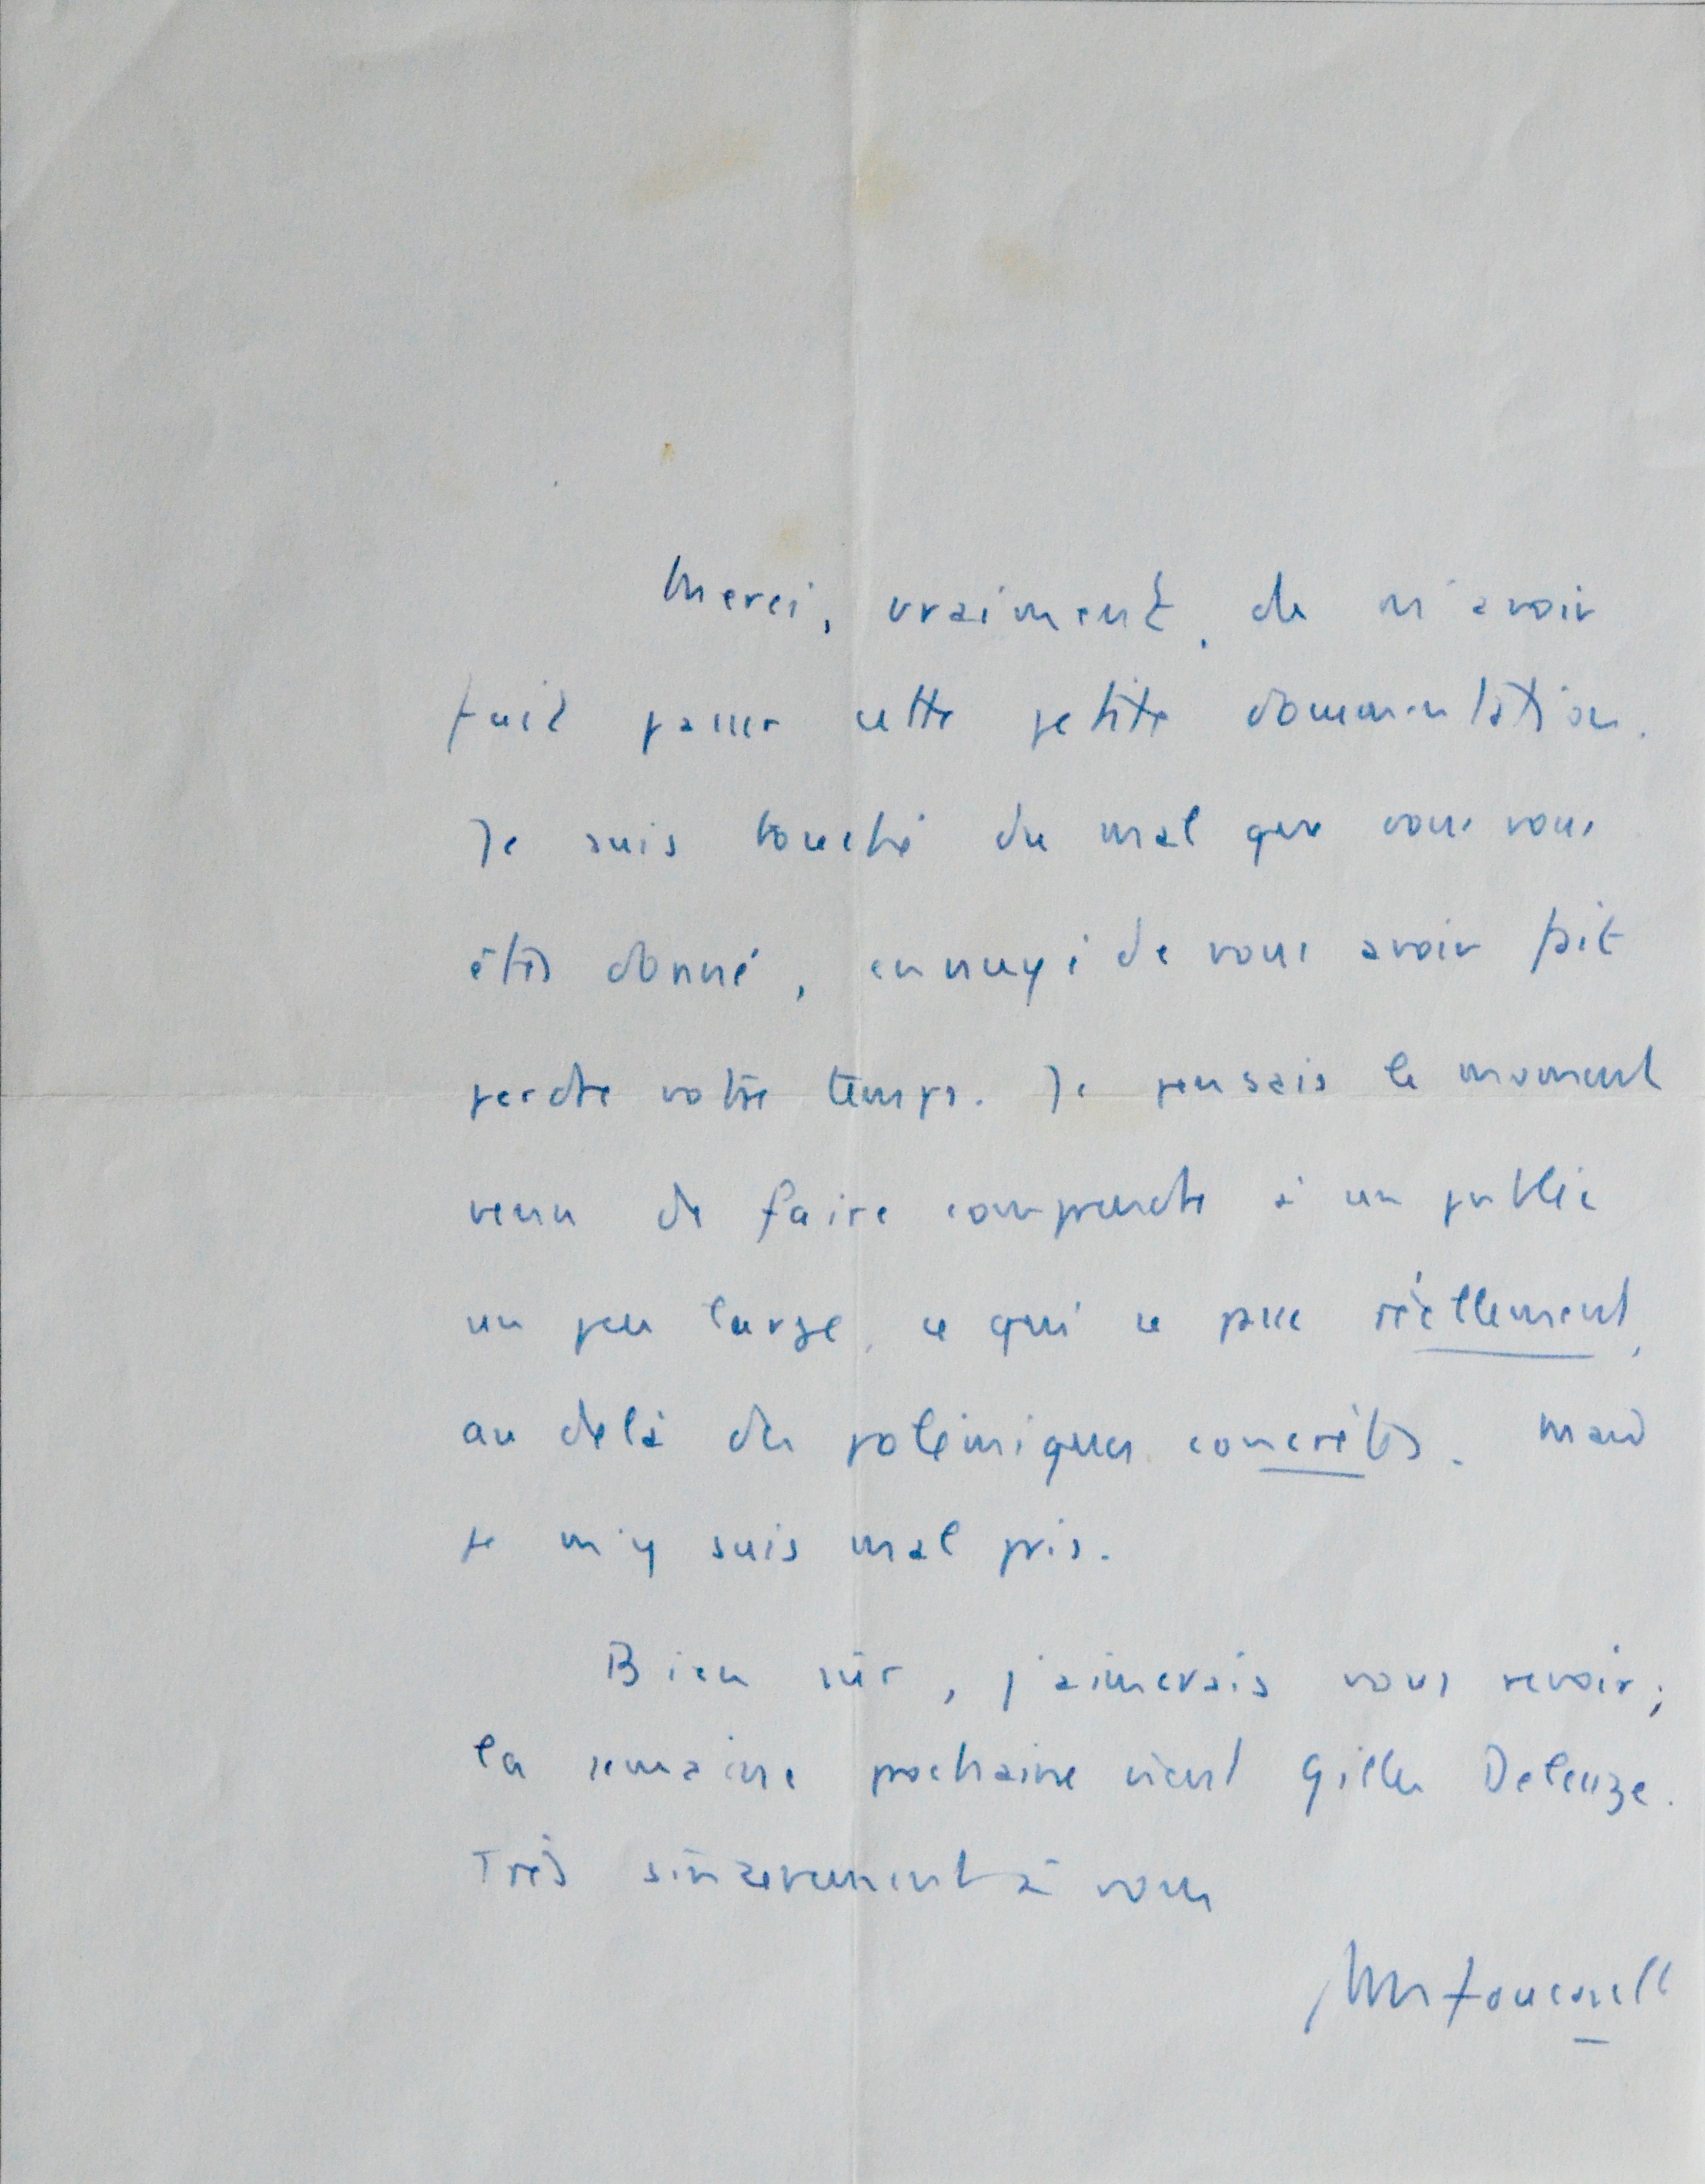 Merci, vraiment, de m'avoir
fait passer cette petite documentation.
Je suis touché du mal que vous vous
êtes donné, ennuyé de vous avoir fait
perdre votre temps. Je pensais le moment
venu de faire comprendre à un public
un peu large, ce qui se passe réellement,
au delà des polémiques concrètes. Mais
je m'y suis mal pris.
Bien sûr, j'aimerais vous revoir;
la semaine prochaine vient Gilles Deleuze.
Très sincèrement à vous
M Foucault